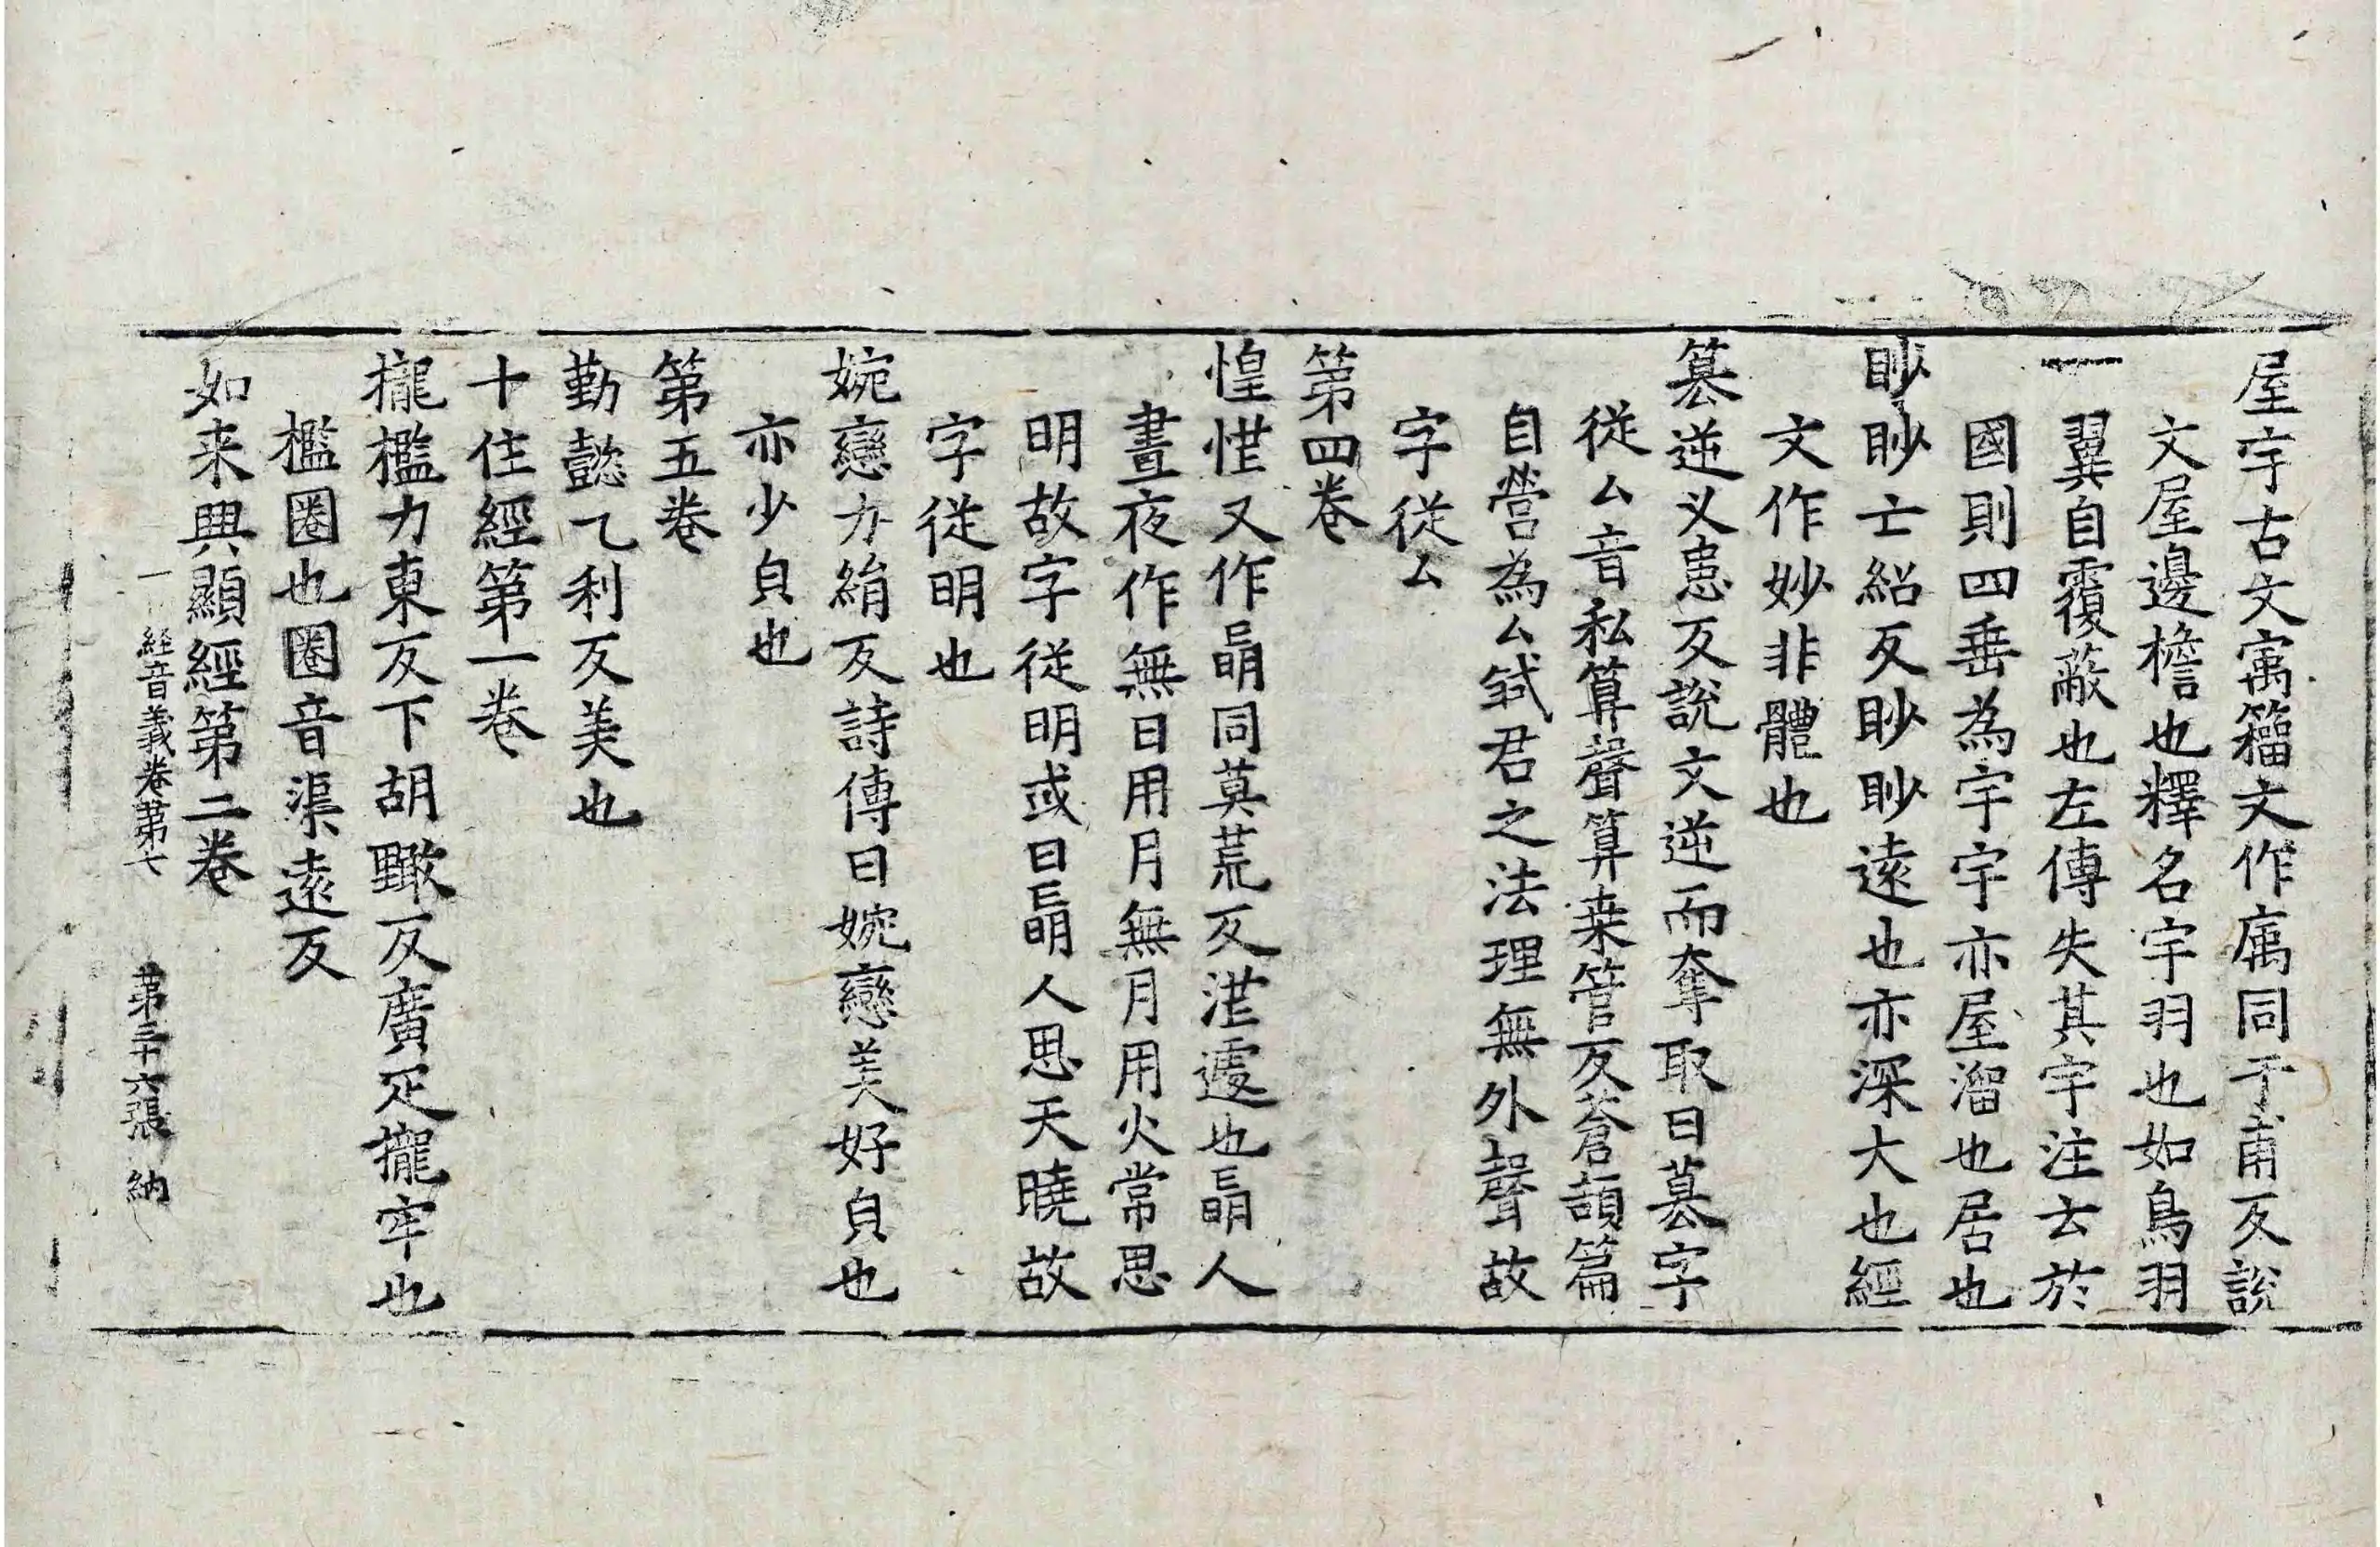 屋宇古文㝢籀文作㢾同于甫反說
文屋邊檐也釋名宇羽也如鳥羽
翼自覆蔽也左傳失其宇注云於
國則四垂為宇宇亦屋溜也居也
眇眇亡紹反眇眇遠也亦深大也經
文作妙非體也
篡逆义患反說文逆而奪取曰篡字
從厶音私算聲算桒管反蒼頡篇
自營為厶弒君之法理無外聲故
字從厶
第四卷
惶恾又作朚同莫荒反茫遽也朚人
晝夜作無日用月無月用火常思
明故字從明或曰朚人思天曉故
字從明也
婉戀力絹反詩傳曰婉戀美好皃也
亦少皃也
第五卷
勤懿乙利反美也
十住經第一卷
攏檻力東反下胡黤反廣疋攏牢也
檻圈也圈音渠遠反
如来興顯經第二卷
一 經音義卷第七 第三十六張 納